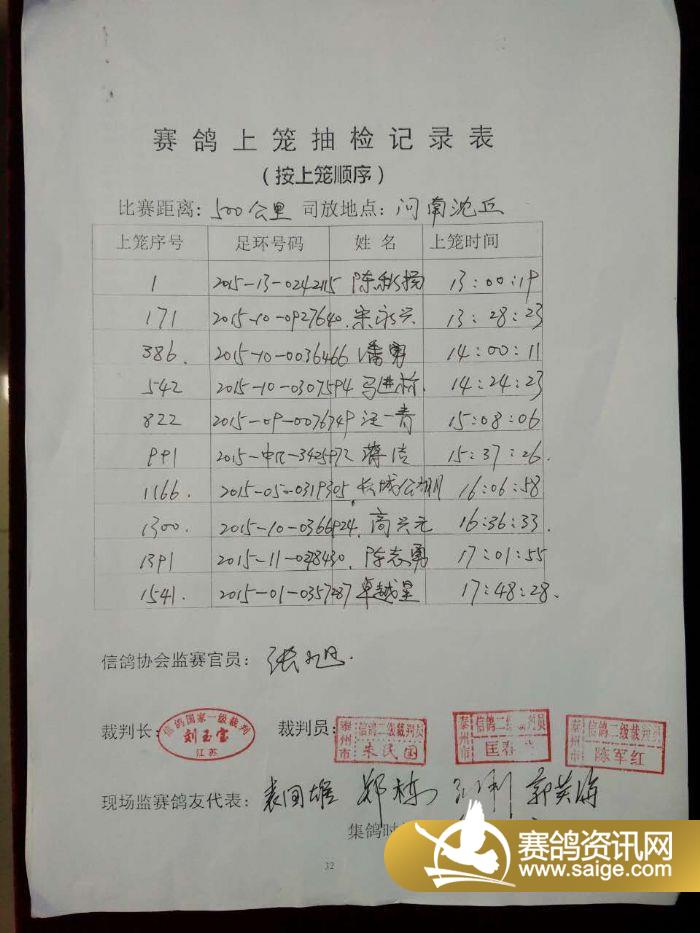 赛鸽上笼抽检记录表
(按上笼顺序)
比赛距离: 500公里 司放地点: 河南沈丘
上笼序号 足环号码 姓名 上笼时间
1 2015-13-0242115 陈利扬 13:00:19
171 2015-10-0927640. 宋永兴 13:28:23
386. 2015-10-0036466 潘勇 14:00:11
542 2015-10-0307594 马进林. 14:24:23
822 2015-09-0076749 汪一青 15:08:06
991 2015-中区-3425972 蒋洁 15:37:26.
1166. 2015-05-0319305. 长城公棚 16:06:58
1300. 2015-10-0366924. 高兴元 16:36:33.
1391 2015-11-0298430. 陈志勇 17:01:55
1541. 2015-01-0357287 卓越星 17:48:28.
信鸽协会监赛官员: 张旭.
裁判长: 信鸽国家一级裁判 刘玉宝 江苏 裁判员: 泰州市 信鸽二级裁判员 朱民国 泰州市 信鸽二级裁判员 匡春 泰州市 信鸽二级裁判员 陈军红
现场监赛鸽友代表: 袁国雄 郑栋 郭英海
集鸽时
32
赛鸽资讯网
www.saige.com